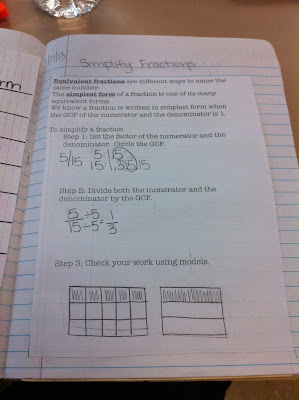 1/7/13
Simplify Fractions
Equivalent fractions are different ways to name the
same number.
The simplest form of a fraction is one of its many
equivalent forms.
We know a fraction is written in simplest form when
the GCF of the numerator and the denominator is 1.
To simplify a fraction
Step 1: list the factor of the numerator and the
denominator. Circle the GCF.
5/15
5: 1, 5
15: 1, 3, 5, 15
Step 2: Divide both the numerator and the
denominator by the GCF.
5 ÷ 5 = 1
15 ÷ 5 3
Step 3: Check your work using models.